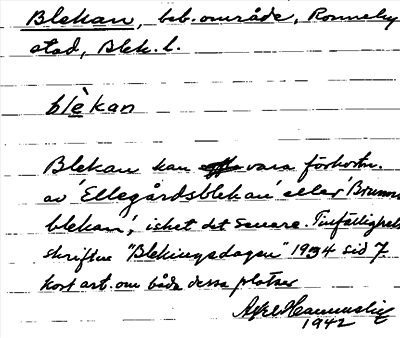 Blekan, beb.område, Ronneby
stad, Blek. l.
blèkan
Blekan kan vara förkortn.
av 'Ellegårdsblekan' eller 'Brunns
blekan', icket det senare. Tillfällighets
skriften "Blekingsdagen" 1934 sid 7
kort art. om båda dessa platser
1942